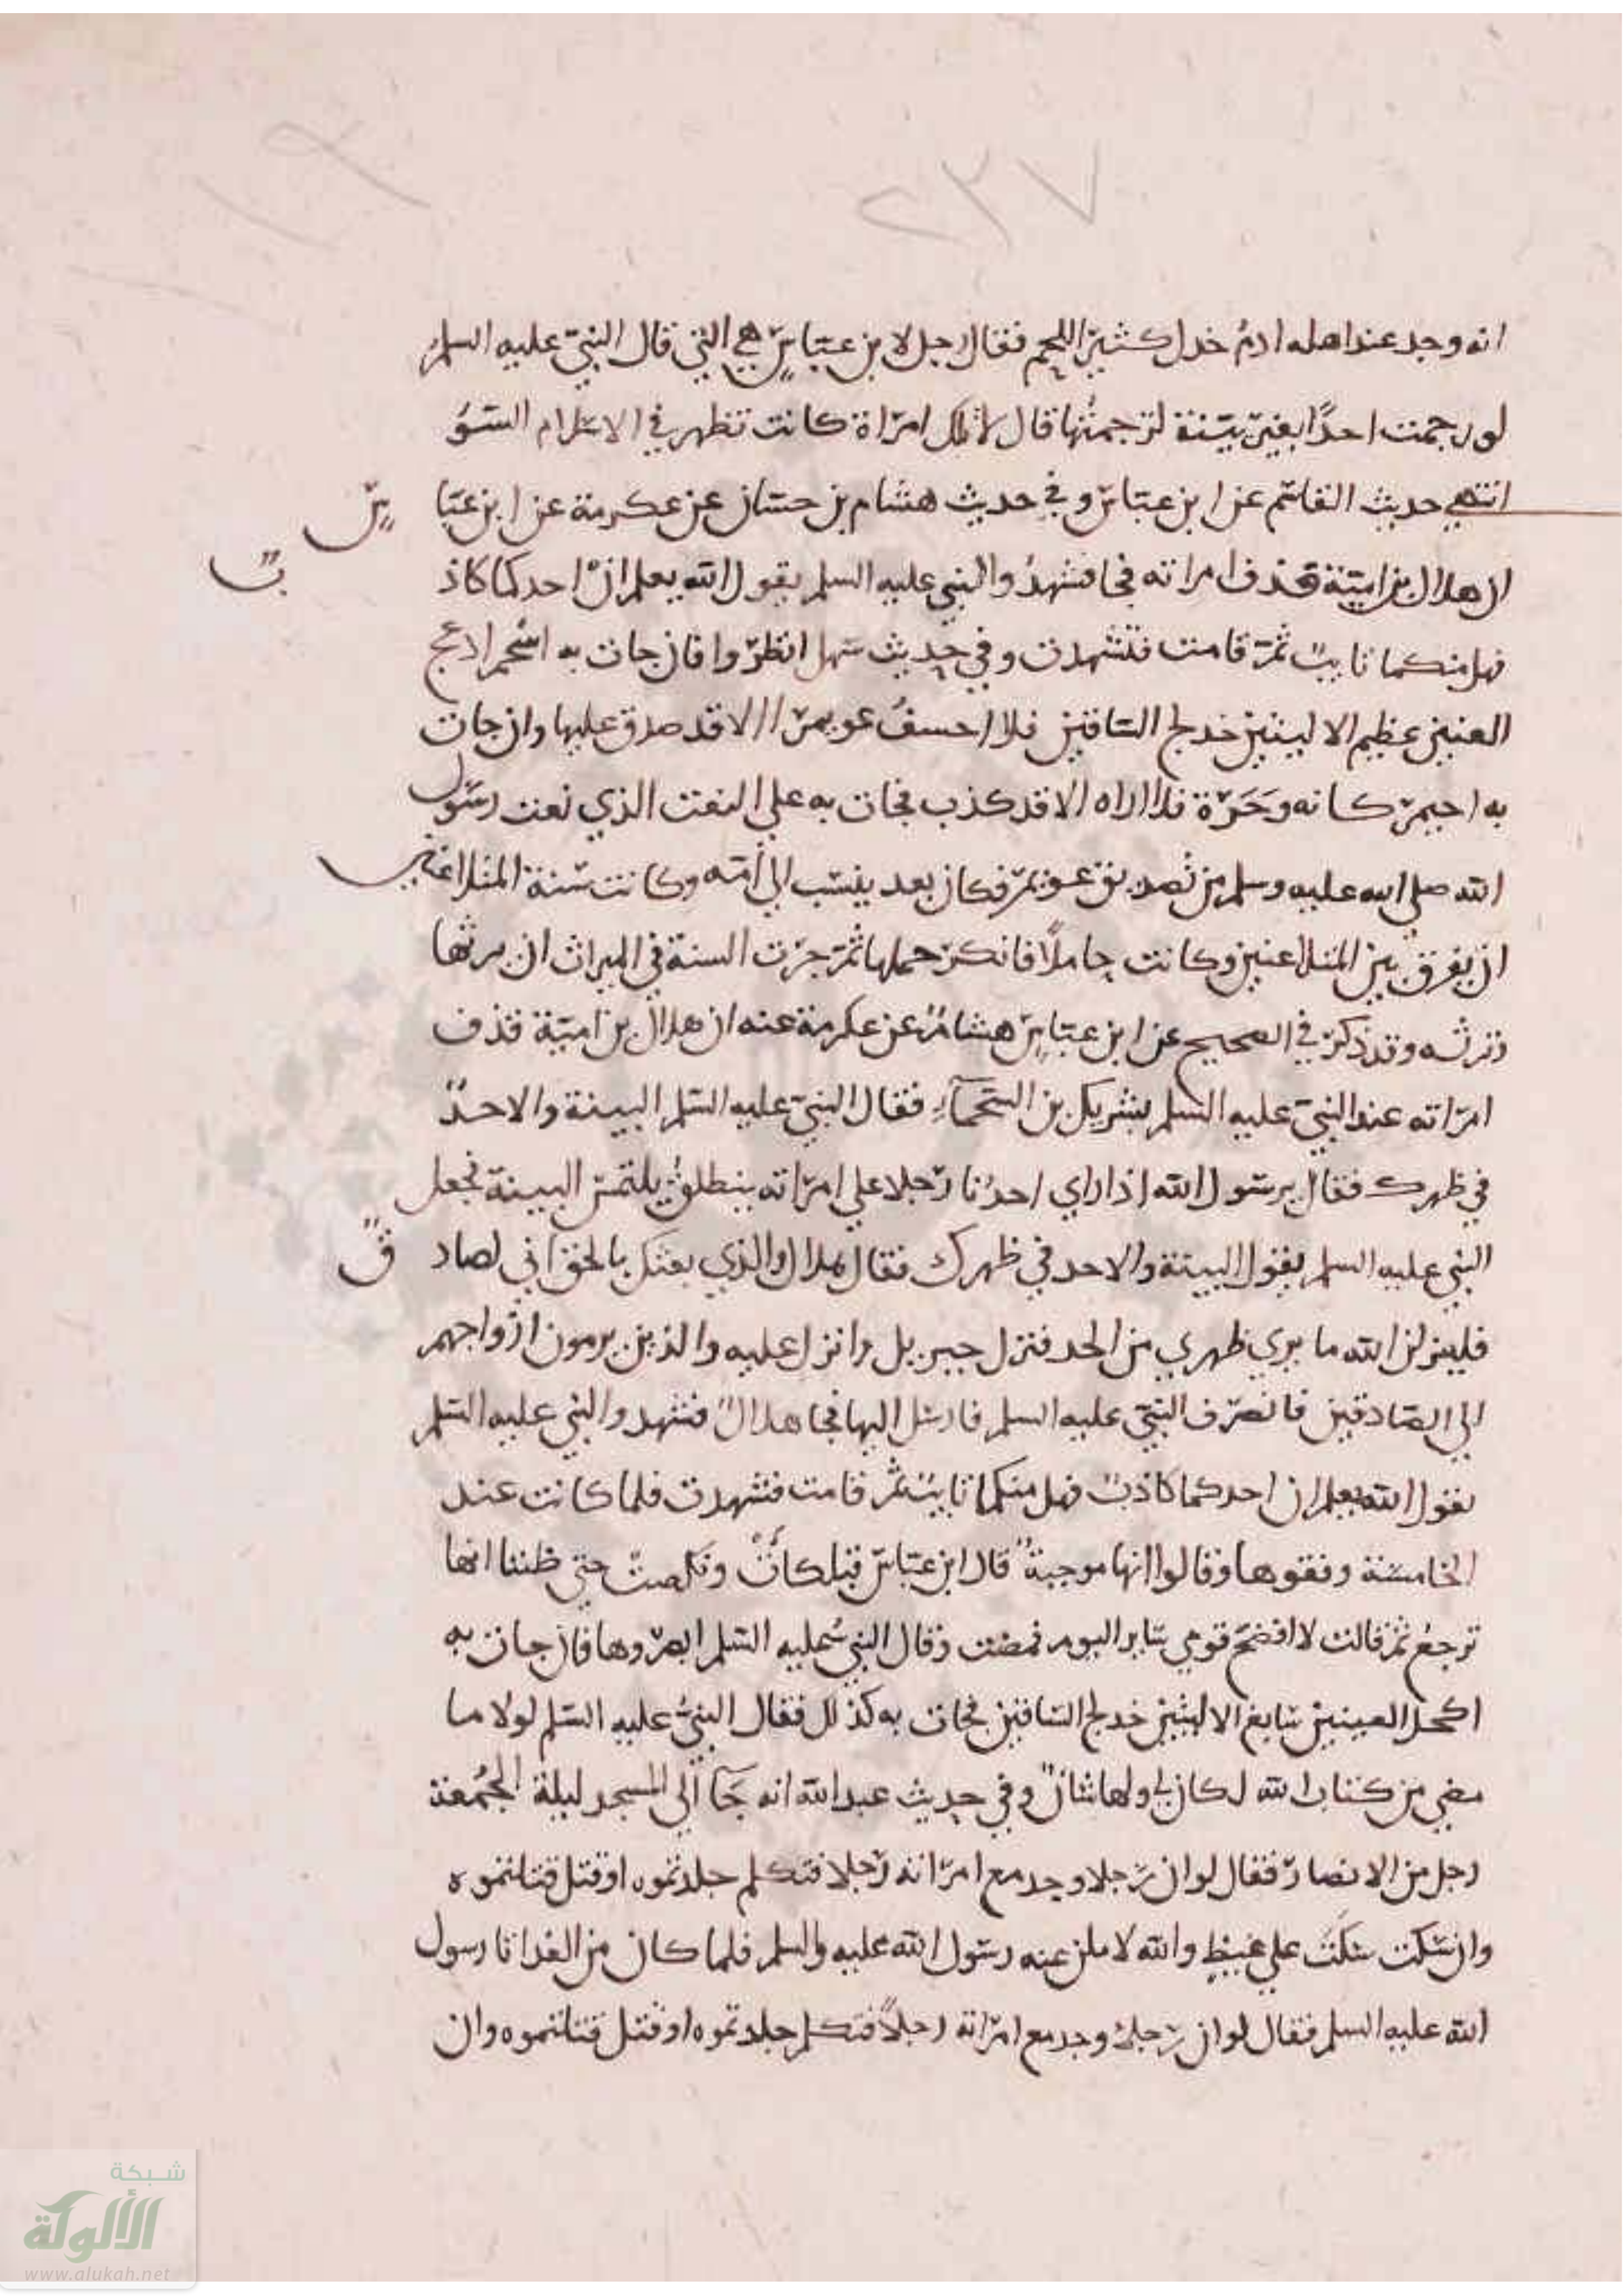 ٢٣٧
انه وجد عند اهله ادمُ خدل كثيرَ اللحم فقال رجل لابن عبّاسٍ هي التي قال النبيّ عليه السلمُ
لو رجمت احدًا بغير بيّنة لرجمتُها قال لا تلك امرَاة كانت تظهر في الاسلام السّوُ
انتهي حديث القاسم عن ابن عبّاس وفي حديث هشام بن حسّان عن عكرمة عن ابن عبّاسٍ
ان هلال بن اميّة قذف امراته فجا فشهدُ والنبي عليه السلم يقول الله يعلم انّ احدكما كاذبٌ
فهل منكما تايبٌ ثمّ قامت فتشهدت وفي حديث سهل انظرّوا فان جات به اسْحم ادعج
العينين عظيم الاليتين خدلج السّاقين فلا احسبُ عويمرّا الا قد صدق عليها وان جات
به احيمرّ كانه وَحَرّة فلا اراه الا قد كذب فجات به علي النعت الذي نعت رسول
الله صلي الله عليه وسلم من تصديق عويمرّ فكان بعد ينسَب الي أمّه وكانت سّنة المتلاعنين
ان يفرق بين المتلاعنين وكانت حاملًا فانكرّ حملها ثمّ جرَت السنة في الميراث ان يرثها
وترثه وقد ذكرّ في الصحيح عن ابن عبّاسٍ هشامٌ عن عكرمة عنه ان هلال بن اميّة قذف
امرّاته عند النبيّ عليه السلم بشريك بن السّحمآءِ فقال النبيّ عليه السّلم البينة والا حدٌّ
في ظهرك فقال يرسّول الله اذا راي احدُنا رّجلا علي امرّاته ينطلقُ يلتمسّ البينة فجعل
النبي عليه السلم يقول البينة والا حد في ظهرك فقال هلال والذي بعثك بالحق اني لصادقٌ
فلينزلن الله ما يبري ظهري من الحد فنزل جبريل وانزل عليه والذين يرمون ازواجهم
الي الصّادقين فانصرّف النبيّ عليه السلم فارسّل اليها فجا هلالٌ فشهد والنبي عليه السّلم
يقول الله يعلم ان احدكما كاذبٌ فهل منكما تايبٌ ثمّ قامت فشهدت فلما كانت عند
الخامسّة وقفوها وقالوا انها موجبةٌ قال ابن عبّاسّ فتلكأتْ ونكصتْ حتي ظننا انها
ترجعُ ثمّ قالت لا افضحّ قومي سّاير اليوم فمضت وقال النبي عليه السّلم ابصرّوها فان جات به
اكحل العينين سّابغ الاليتين خدلج السّاقين فجات به كذلك فقال النبيُّ عليه السّلم لولا ما
مضي من كتاب الله لكان لي ولها شانٌ وفي حديث عبد الله انه جَآ الي المسجد ليلة الجُمُعة
رجل من الانصارّ فقال لو ان رّجلا وجد مع امرّاته رّجلا فتكلم جلدتموه او قتل قتلتموه
وان سّكت سّكَتَ علي غيظٍ والله لاسلن عنه رسّول الله عليه والسلم فلما كان من الغد اتا رسول
الله عليه السلم فقال لو ان رّجلا وجد مع امرّاته رجلاً فتكلم جلدتموه او قتل قتلتموه وان
شبكة
الألوكة
www.alukah.net